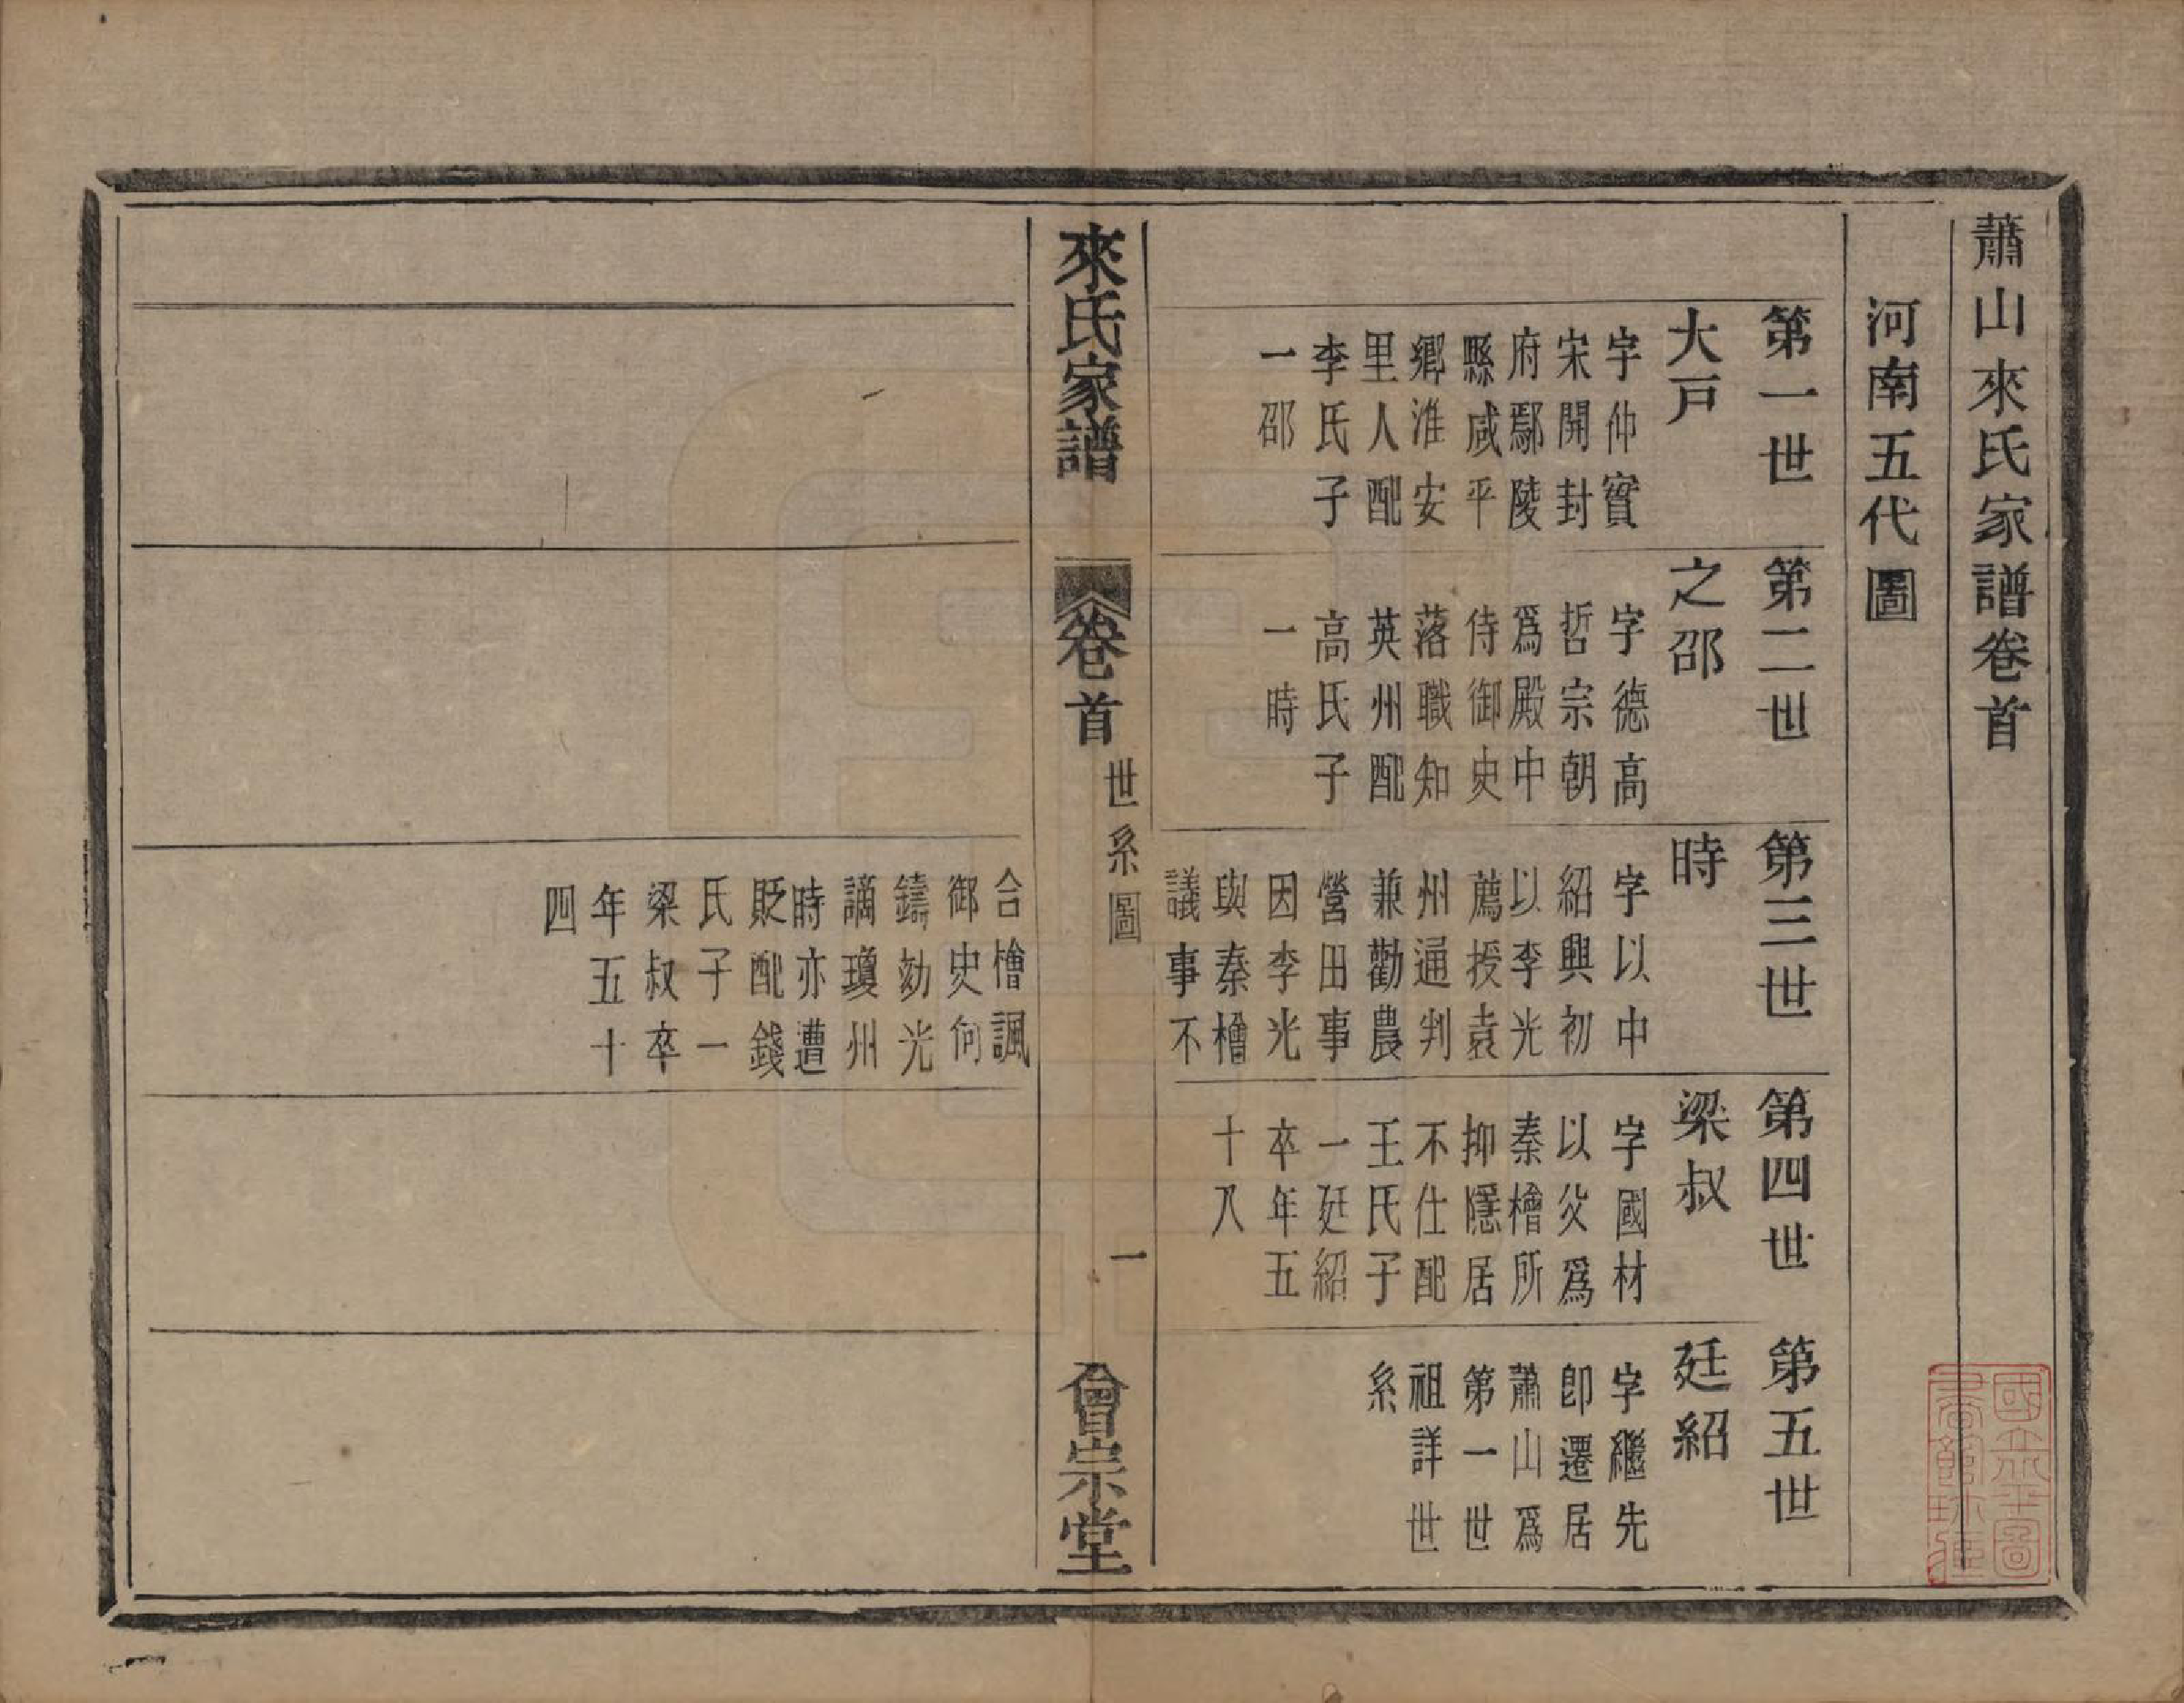 蕭山來氏家譜卷首
河南五代圖
第一世
大戸
字仲實
宋開封
府鄢陵
縣咸平
鄉淮安
里人配
李氏子
一邵
第二世
之邵
字德高
哲宗朝
爲殿中
侍御史
落職知
英州配
高氏子
一時
第三世
時
字以中
紹興初
以李光
薦授袁
州通判
兼勸農
營田事
因李光
與秦檜
議事不
第四世
梁叔
字國材
以父爲
秦檜所
抑隱居
不仕配
王氏子
一廷紹
卒年五
十八
第五世
廷紹
字繼先
卽遷居
蕭山爲
第一世
祖詳世
系
來氏家譜
卷首
世系圖
一
會宗堂
合檜諷
御史何
鑄劾光
謫瓊州
時亦遭
貶配錢
氏子一
梁叔卒
年五十
四